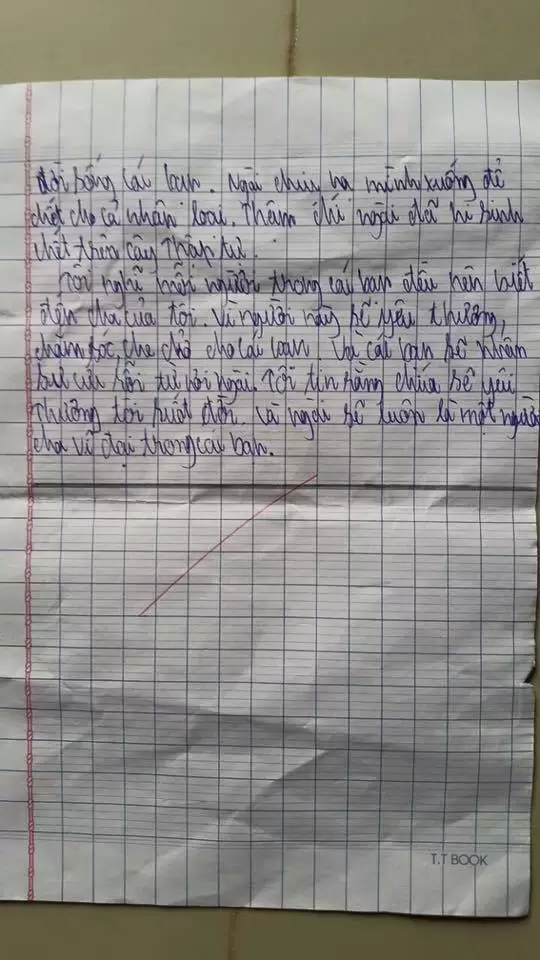 đời sống cái bạn. Ngài chịu hạ mình xuống để
chết cho cả nhân loại. Thậm chí ngài đã hi sinh
chết trên cây Thập tự.
Tôi nghĩ mỗi người trong cái bạn đều nên biết
đến cha của tôi. Vì người này sẽ yêu thương,
chăm sóc, che chở cho cái bạn. Và cái bạn sẽ nhận
sự cứu rỗi từ nơi ngài. Tôi tin rằng chúa sẽ yêu
thương tôi suốt đời. và ngài sẽ luôn là một người
cha vĩ đại trong cái bạn.
T.T BOOK